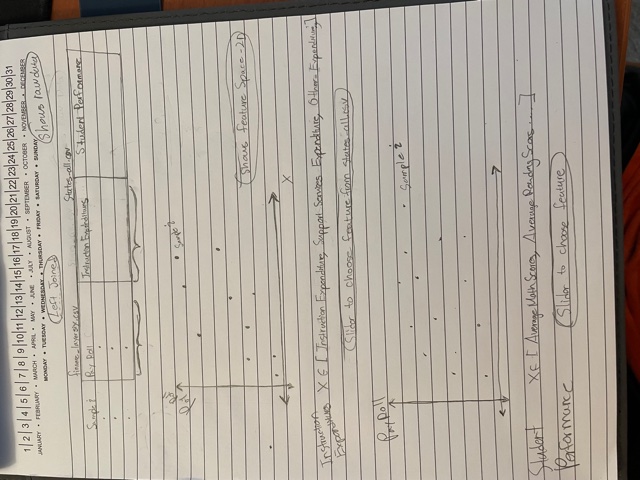 1 2 3 4 5 6 7 8 9 10 11 12 13 14 15 16 17 18 19 20 21 22 23 24 25 26 27 28 29 30 31
JANUARY • FEBRUARY • MARCH • APRIL • MAY • JUNE • JULY • AUGUST • SEPTEMBER • OCTOBER • NOVEMBER • DECEMBER
MONDAY • TUESDAY • WEDNESDAY • THURSDAY • FRIDAY • SATURDAY • SUNDAY
Shows raw data
Left Joined
.csv States-all.csv
Sample i Pay Roll Instruction Expenditures Student Performance
Pay Roll
Sample i
Shows feature Space - 2D
X
Instruction
Expenditure X ∈ [Instruction Expenditure, Support Services Expenditure, Other Expenditure]
Slider to choose feature from states-all.csv
Pay Roll
Sample i
Student X ∈ [Average Math Scores, Average Reading Scores ....]
Performance Slider to choose feature